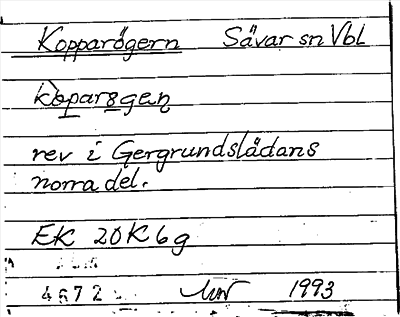 Kopparögern Sävar sn Vbl
rev i Gergrundslädans
norra del.
EK 20K6g
4672
1993